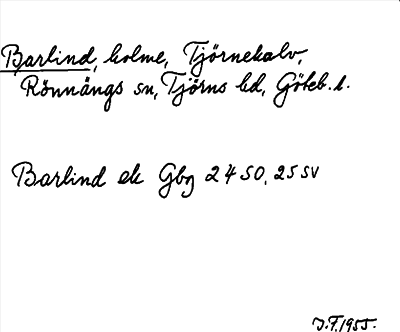 Barlind, holme, Tjörnekalv,
Rönnängs sn, Tjörns hd, Göteb. l.
Barlind ek Gbg 24 SO, 25 SV
J.F. 1955.